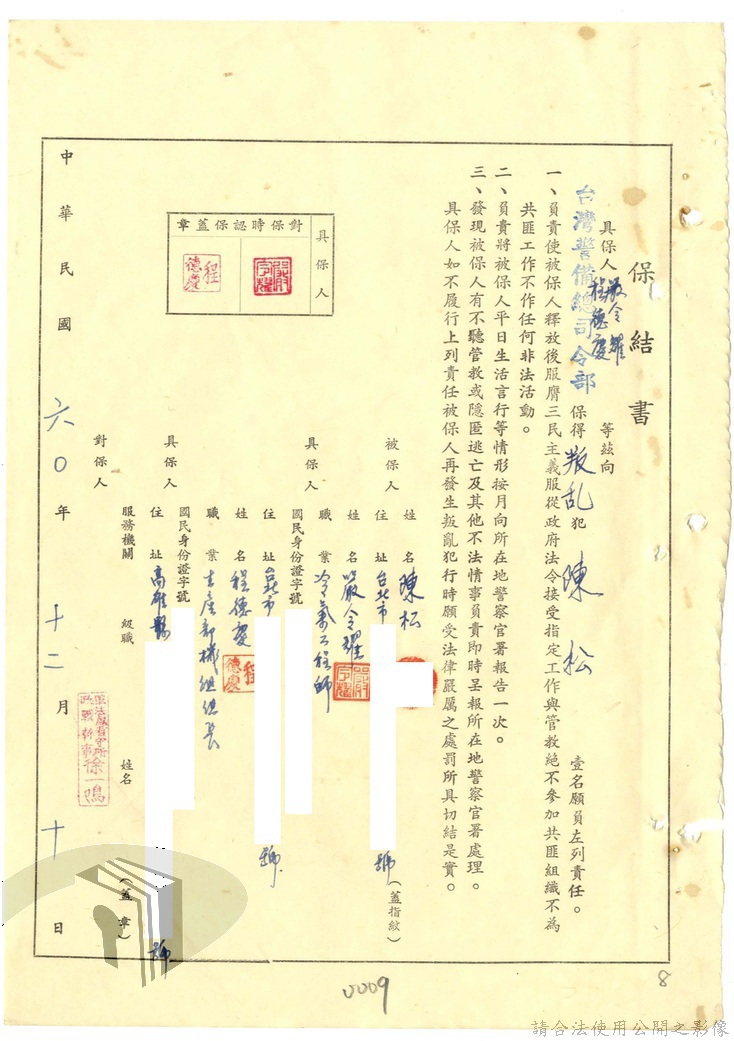 保結書
具保人嚴令耀
程德慶
等茲向
台灣警備總司令部
保得叛乱犯陳松壹名願負左列責任。
一、負責使被保人釋放後服膺三民主義服從政府法令接受指定工作與管教絕不參加共匪組織不為
共匪工作不作任何非法活動。
二、負責將被保人平日生活言行等情形按月向所在地警察官署報告一次。
三、發現被保人有不聽管教或隱匿逃亡及其他不法情事負責即時呈報所在地警察官署處理。
具保人如不履行上列責任被保人再發生叛亂犯行時願受法律嚴厲之處罰所具切結是實。
具保人
對保時認保蓋章
嚴令耀
程德慶
被保人
姓名陳松
住址台北市
號(蓋指紋)
具保人
姓名嚴令耀
嚴令耀
職業冷氣工程師
國民身份證字號
住址台北市
號
姓名程德慶
程德慶
具保人
職業生產部機組組長
國民身份證字號
住址高雄縣
號
對保人
服務機關
級職
姓名
(蓋章)
徐一鳴
中華民國六0年十二月十日
0009
8
請合法使用公開之影像